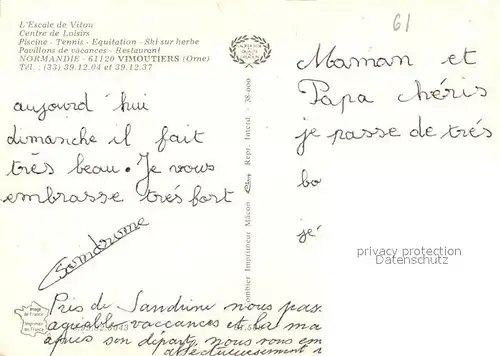 L'Escale de Vitou
Centre de Loisirs
Piscine - Tennis - Equitation - Ski sur herbe
Pavillons de vacances - Restaurant
NORMANDIE - 61120 VIMOUTIERS (Orne)
Tél. : (33) 39.12.04 et 39.12.37
61
Maman et
Papa chéris
je passe de trés
bo
je
aujourd'hui
dimanche il fait
très beau. Je vous
embrasse trés fort
Sandrine
Combier Imprimeur Mâcon Repr. Interd. - 38-000
privacy protection
Datenschutz
Image de France
Imprimée en France
Près de Sandrine nous pas
agréable vaccances et la ma
après son départ, nous vous em
affectueusement